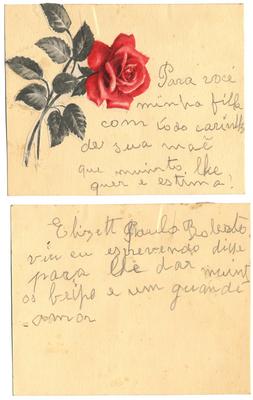 Para você
minha filha
com todo carinho
de sua maê
que muinto lhe
quer e estima!
Elizett Paulo Roberto,
viu eu esrevendo disse
para lhe dar muint
os beijo e um grande
amor